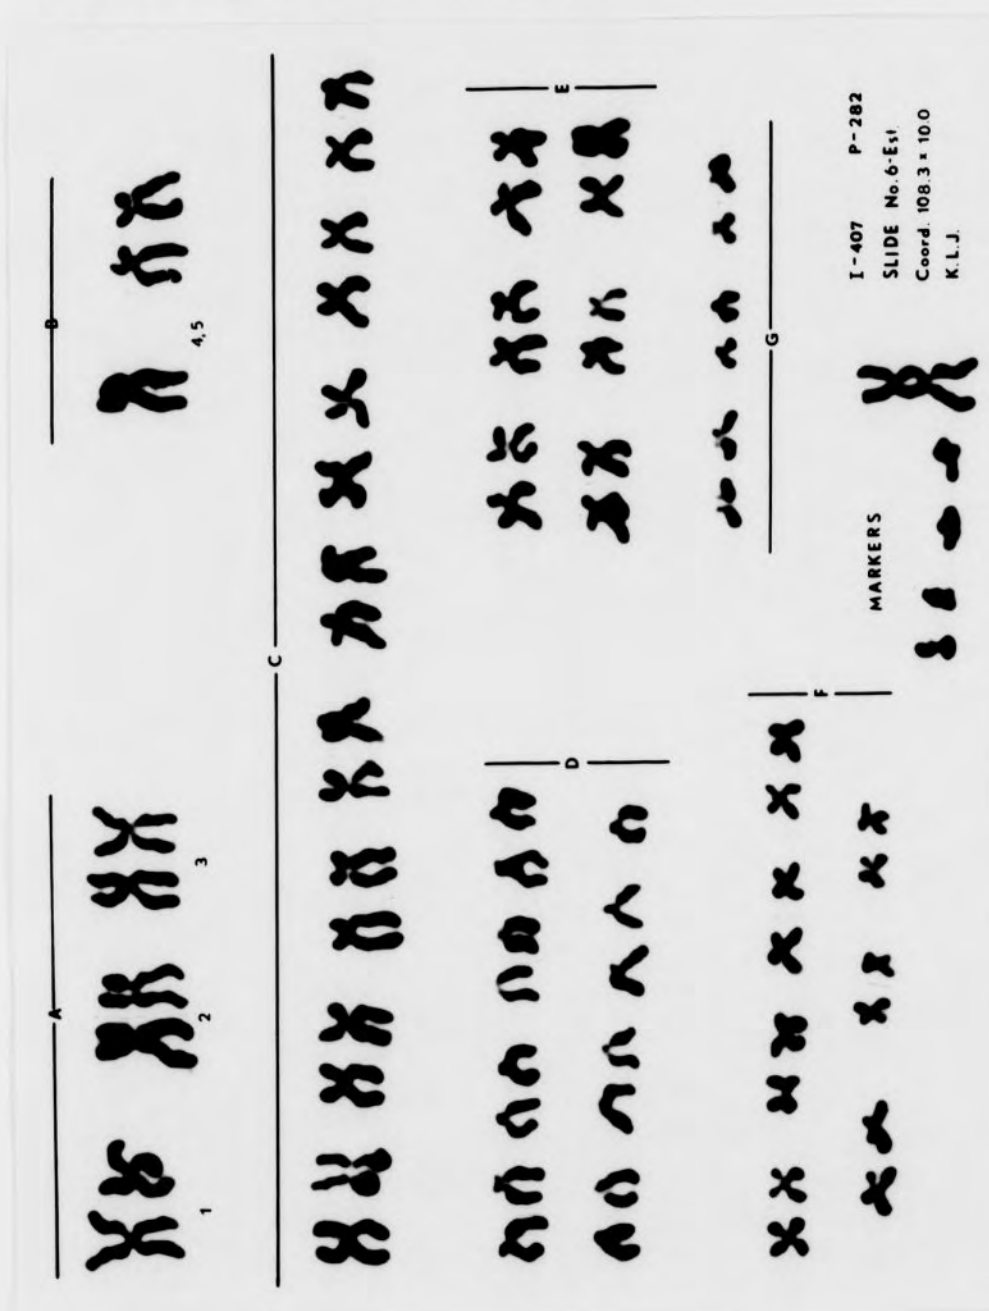 A
B
1
2
3
4,5
C
D
E
F
G
MARKERS
I-407 P-282
SLIDE No. 6-Est.
Coord. 108.3 x 10.0
K.L.J.